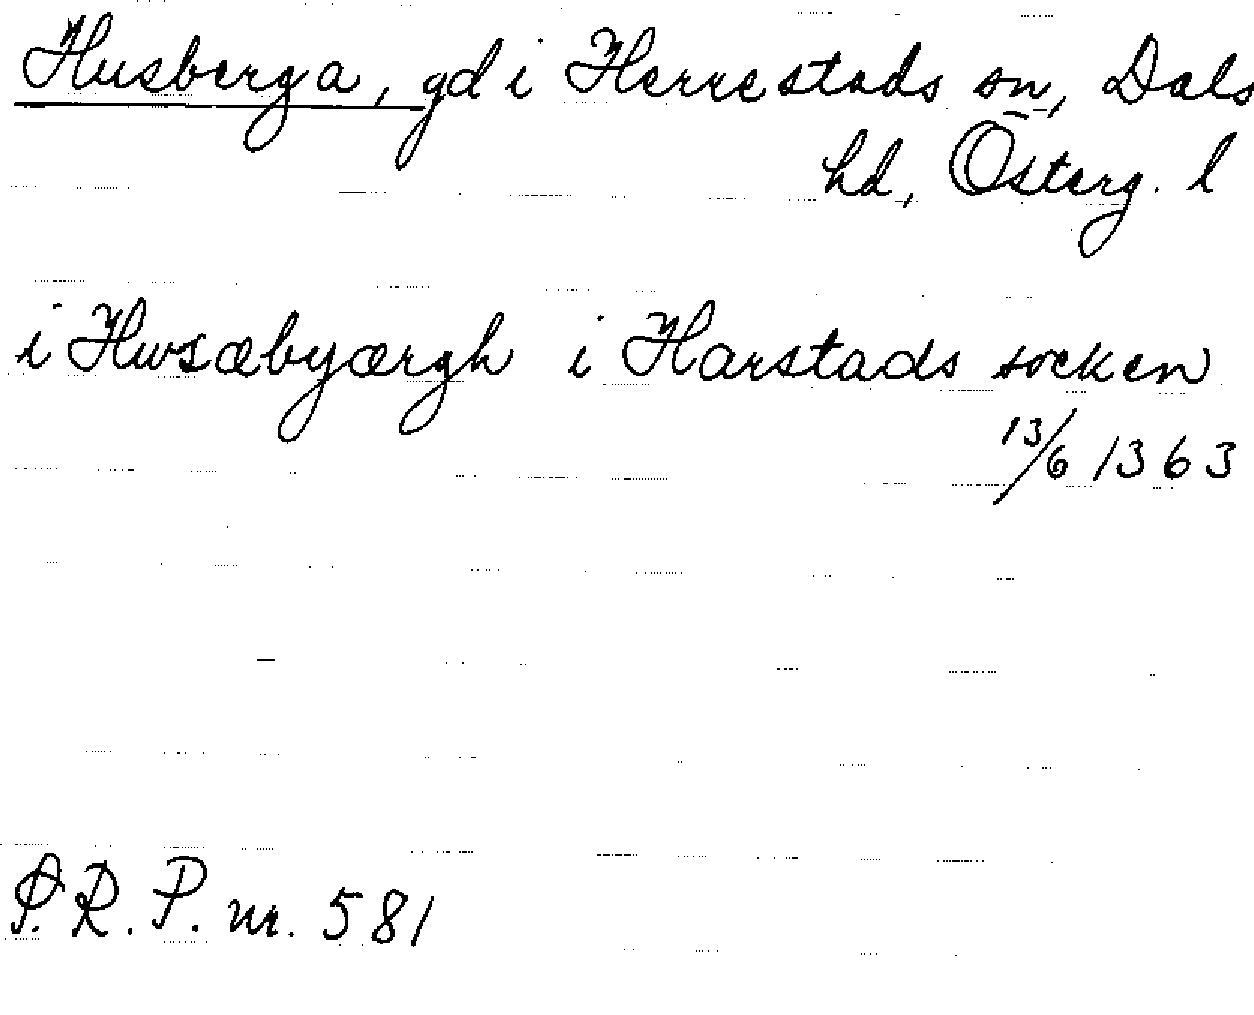 Husberga, gd i Herrestads sn, Dals
hd, Österg. l
i Hwsæbyærgh i Harstads socken
13/6 1363
P.R.P. nr. 581